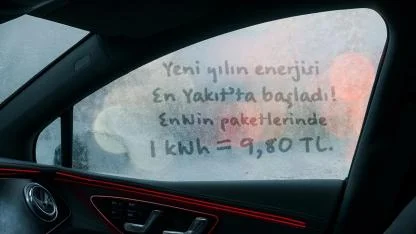 Yeni yılın enerjisi
En Yakıt'ta başladı!
EnWin paketlerinde
1 kWh = 9,80 TL.